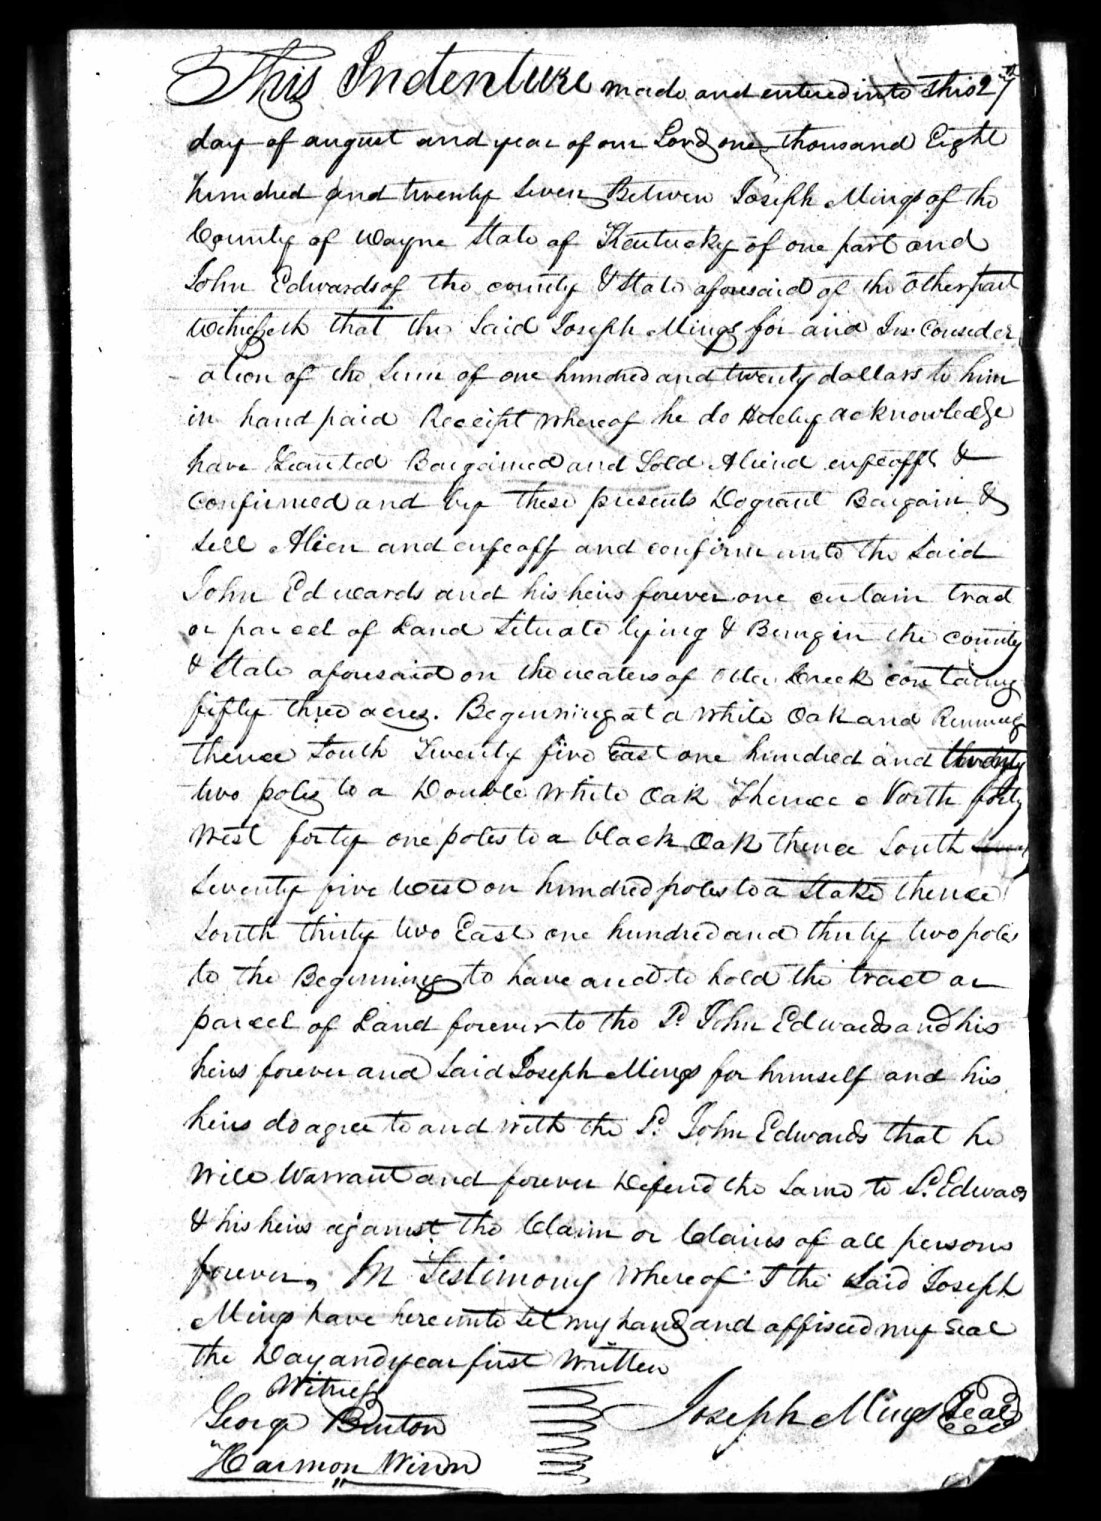 This Indenture made and entered into this 27th
day of august and year of our Lord one thousand Eight
hundred and twenty Seven Between Joseph Mings of the
County of Wayne State of Kentucky of one part and
John Edwards of the county & State aforesaid of the other part
Witnesseth that the Said Joseph Mings for and In Consider
ation of the Sum of one hundred and twenty dollars to him
in hand paid Receipt whereof he do Hereby acknowledge
have Granted Bargained and Sold Aliend enfeoffd &
confirmed and by these presents Do grant Bargain &
Sell Alien and enfeoff and confirm unto the Said
John Edwards and his heirs forever one certain tract
or parcel of Land Situate lying & Being in the county
& State aforesaid on the waters of Otter Creek containg
fifty three acres. Beginning at a white Oak and Running
thence South Twenty five East one hundred and twenty
two poles to a Double white Oak Thence North forty
West forty one poles to a black Oak thence South
Seventy five West on hundred poles to a Stake thence
South thirty two East one hundred and thirty two poles
to the Beginning to have and to hold the tract or
parcel of Land forever to the Sd John Edwards and his
heirs forever and Said Joseph Mings for himself and his
heirs do agree to and with the Sd John Edwards that he
Will Warrant and forever Defend the Same to Sd Edwards
& his heirs against the Claim or Claims of all persons
forever, In Testimony whereof I the Said Joseph
Mings have hereunto Set my hand and affixed my Seal
the Day and year first Written
Witness
George Burton
Joseph Mings Seal
Harmon Winn